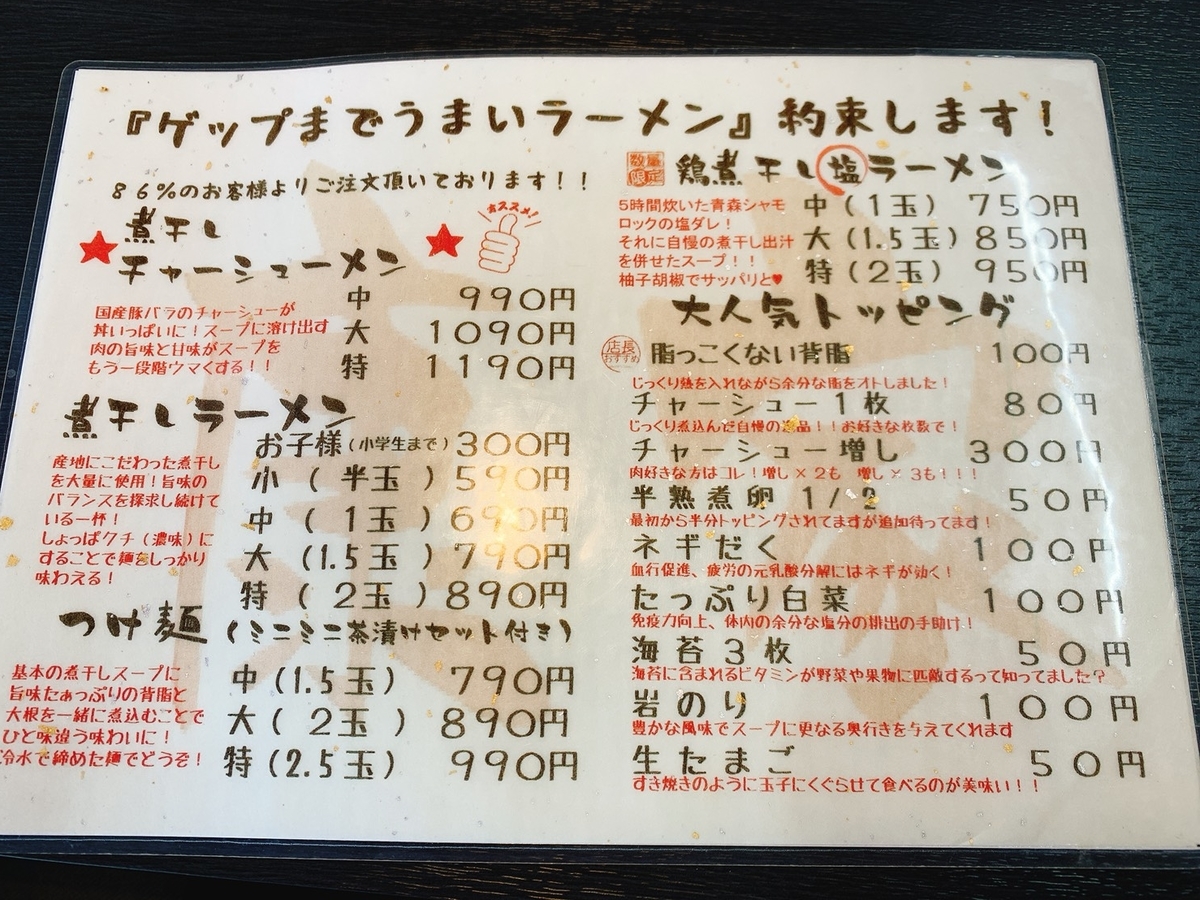 『ゲップまでうまいラーメン』約束します！
86%のお客様よりご注文頂いております！！
オススメ！
★煮干し
チャーシューメン★
国産豚バラのチャーシューが
丼いっぱいに！スープに溶け出す
肉の旨味と甘味がスープを
もう一段階ウマくする！！
中 990円
大 1090円
特 1190円
煮干しラーメン
産地にこだわった煮干し
を大量に使用！旨味の
バランスを探求し続けて
いる一杯！
しょっぱクチ（濃味）に
することで麺をしっかり
味わえる！
お子様（小学生まで）300円
小（半玉）590円
中（1玉）690円
大（1.5玉）790円
特（2玉）890円
つけ麺（ミニミニ茶漬けセット付き）
基本の煮干しスープに
旨味たぁっぷりの背脂と
大根を一緒に煮込むことで
ひと味違う味わいに！
冷水で締めた麺でどうぞ！
中（1.5玉）790円
大（2玉）890円
特（2.5玉）990円
数量限定 鶏煮干し塩ラーメン
5時間炊いた青森シャモ
ロックの塩ダレ！
それに自慢の煮干し出汁
を併せたスープ！！
柚子胡椒でサッパリと♥
中（1玉）750円
大（1.5玉）850円
特（2玉）950円
大人気トッピング
店長おすすめ 脂っこくない背脂 100円
じっくり熱を入れながら余分な脂をオトしました！
チャーシュー1枚 80円
じっくり煮込んだ自慢の逸品！！お好きな枚数で！
チャーシュー増し 300円
肉好きな方はコレ！増し×2も 増し×3も！！！
半熟煮卵 1/2 50円
最初から半分トッピングされてますが追加待ってます！
ネギだく 100円
血行促進、疲労の元乳酸分解にはネギが効く！
たっぷり白菜 100円
免疫力向上、体内の余分な塩分の排出の手助け！
海苔3枚 50円
海苔に含まれるビタミンが野菜や果物に匹敵するって知ってました？
岩のり 100円
豊かな風味でスープに更なる奥行きを与えてくれます
生たまご 50円
すき焼きのように玉子にくぐらせて食べるのが美味い！！